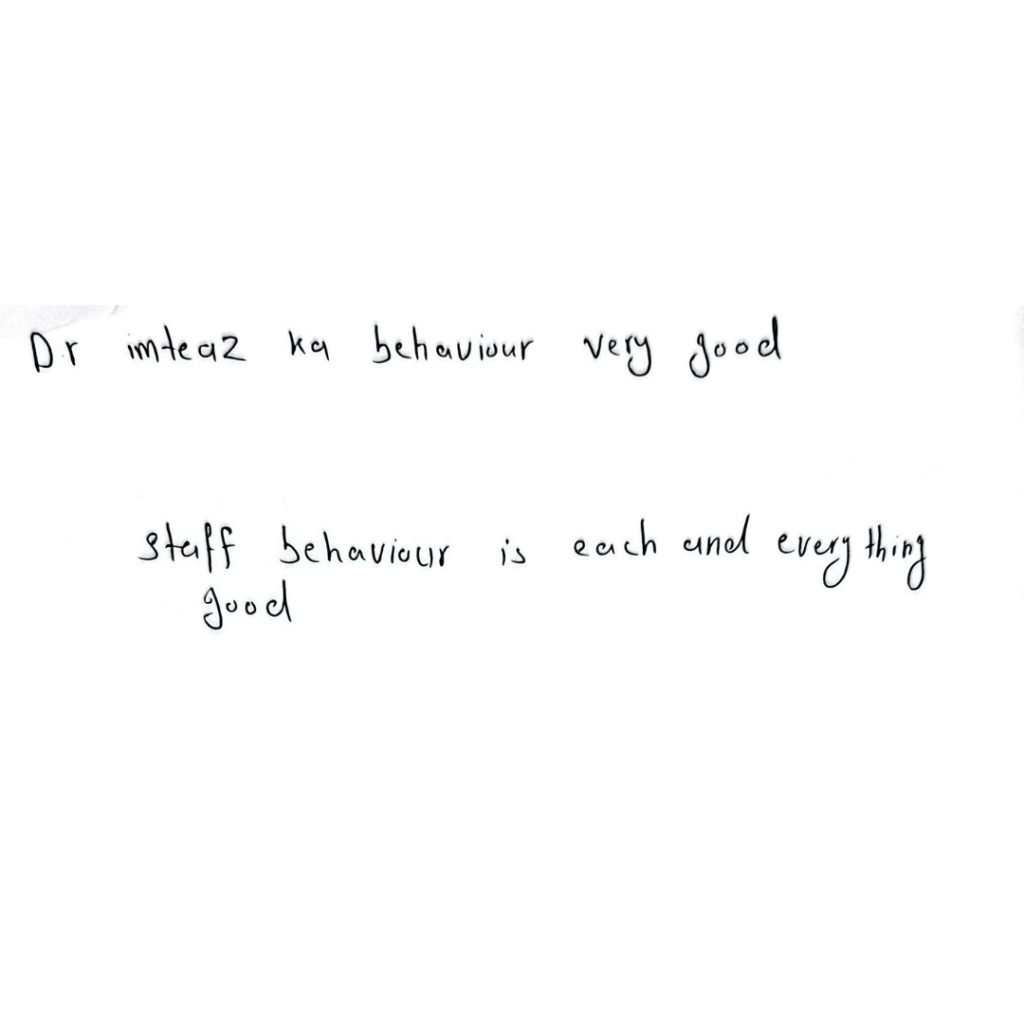 Dr imteaz ka behaviour very good
staff behaviour is each and every thing
good